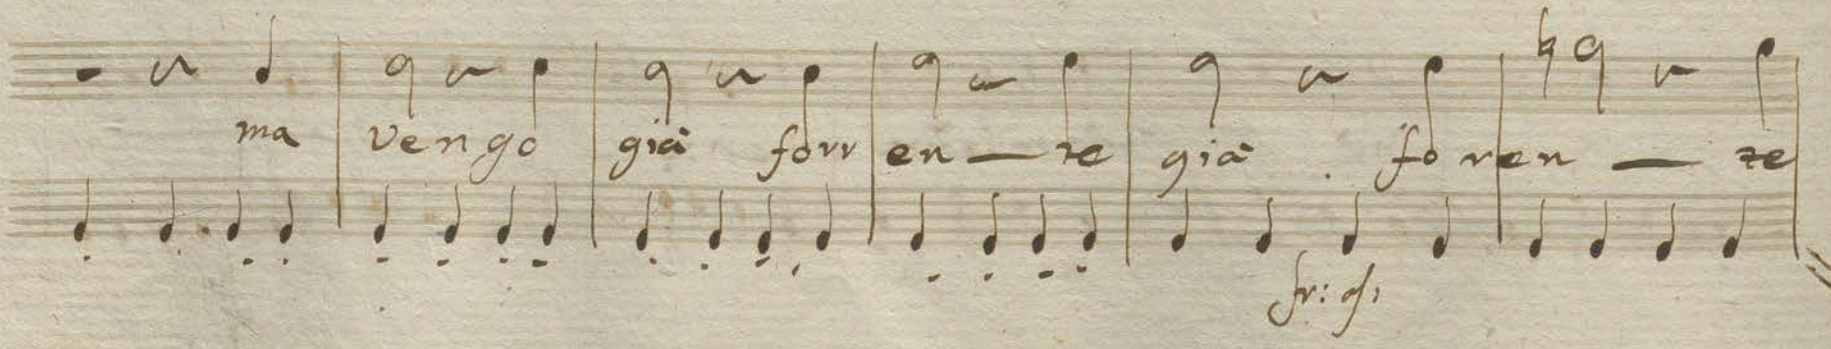 ma vengo già forr en — te già foren — te